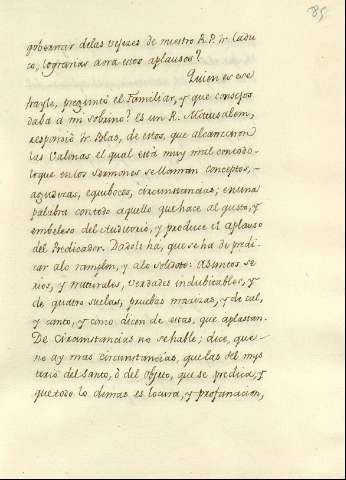 85
gobernar delas vejezes de nuestro R. P. fr. Cadu
co, lograrias aora estos aplausos?
Quien es ese
frayle, preguntó el Familiar, y que consejos
daba a mi sobrino? Es un R. Matusalem,
respondió fr. Blas, de estos, que alcanzaron
las Valonas el qual está muy mal contodo
loque enlos sermones sellaman conceptos,
agudezas, equibocos, circunstancias; en una
palabra contodo aquello que hace al gusto, y
embeleso del Auditorio, y produce el aplauso
del Predicador. Dadole há, que se ha de predi
car alo ramplon, y alo soldado: Asuntos se
rios, y naturales, verdades indubitables, y
de quatro suelas, pruebas mazizas, y de cal,
y canto, y como dicen de estas, que aplastan.
De circunstancias no sehable; dice, que
no ay mas circunstancias, quelas del mys
terio del Santo, ò del Objeto, que se predica, y
quetodo lo demas es locura, y profanacion,